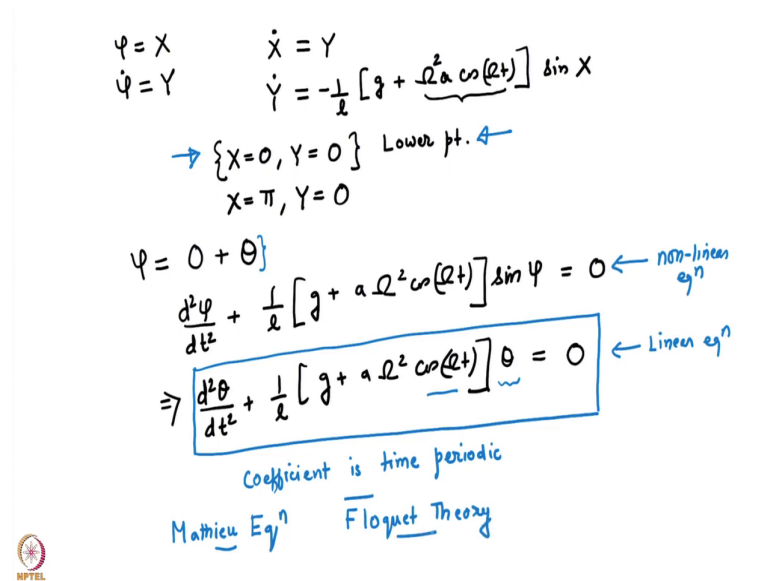 φ = X    Ẋ = Y
φ̇ = Y    Ẏ = -1/l [g + Ω²a cos(Ωt)] sin X
→ {X=0, Y=0} Lower pt. ←
X=π, Y=0
φ = 0 + θ}
d²φ/dt² + 1/l [g + a Ω² cos(Ωt)] sin φ = 0 ← non-linear eqⁿ
⇒ d²θ/dt² + 1/l [g + a Ω² cos(Ωt)] θ = 0 ← Linear eqⁿ
Coefficient is time periodic
Mathieu Eqⁿ    Floquet Theory
NPTEL